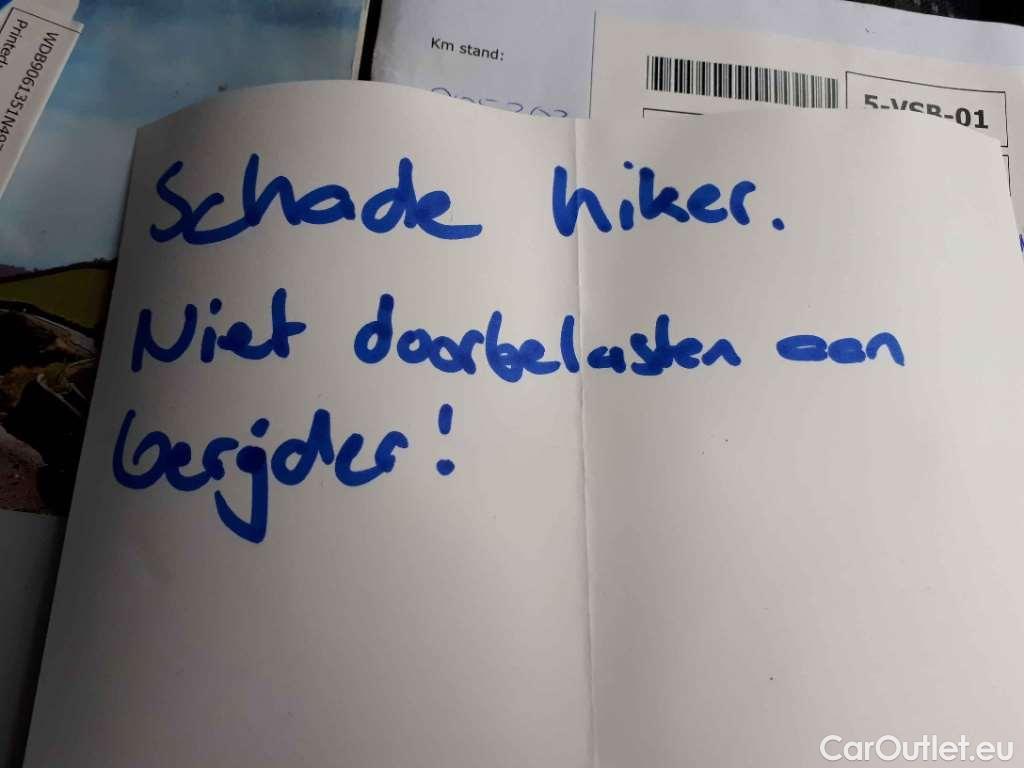 WDB9061351N49
Printed
Km stand:
5-VSB-01
Schade hiker.
Niet doorbelasten aan
berijder!
CarOutlet.eu